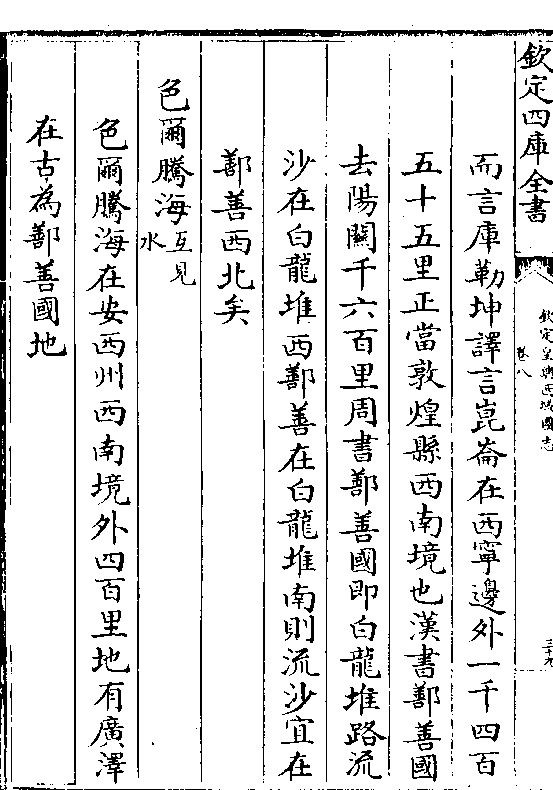 欽定四庫全書
欽定皇輿西域圖志
卷八
三十九
而言庫勒坤譯言崑崙在西寧邊外一千四百
五十五里正當敦煌縣西南境也漢書鄯善國
去陽關千六百里周書鄯善國即白龍堆路流
沙在白龍堆西鄯善在白龍堆南則流沙宜在
鄯善西北矣
色爾騰海互見水
色爾騰海在安西州西南境外四百里地有廣澤
在古為鄯善國地